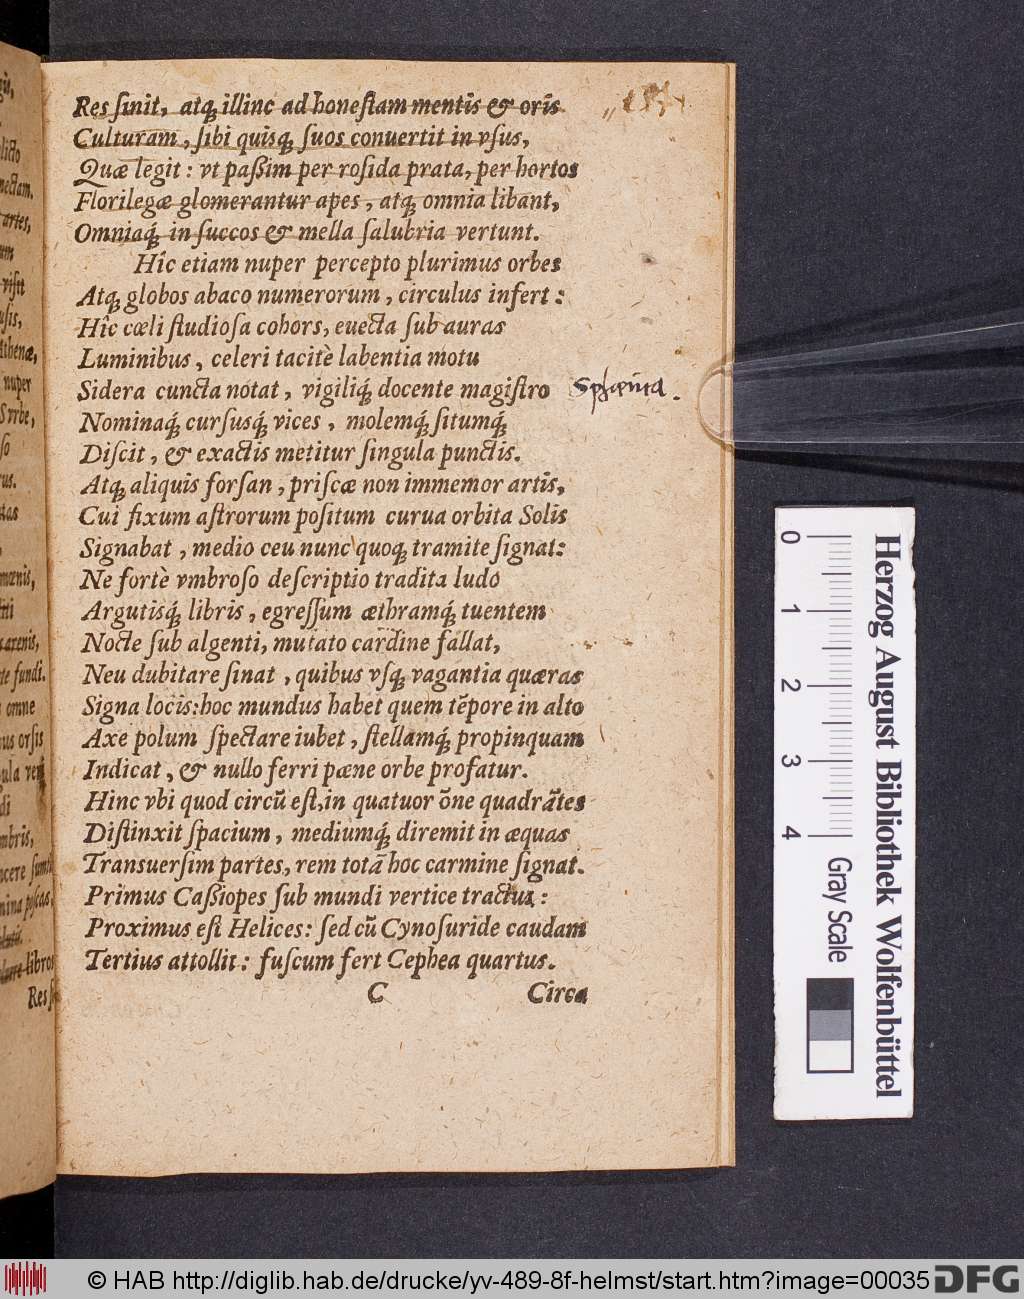 Res ſinit, atq; illinc ad honeſtam mentis & oris
Culturam, ſibi quisq; ſuos conuertit in vſus,
Quæ legit: vt paßim per roſida prata, per hortos
Florilegæ glomerantur apes, atq; omnia libant,
Omniaq́; in ſuccos & mella ſalubria vertunt.
Hîc etiam nuper percepto plurimus orbes
Atq; globos abaco numerorum, circulus infert:
Hîc cœli ſtudioſa cohors, euecta ſub auras
Luminibus, celeri tacitè labentia motu
Sidera cuncta notat, vigiliq́; docente magiſtro
Nominaq́; curſusq́; vices, molemq́; ſitumq́;
Diſcit, & exactis metitur ſingula punctis.
Atq; aliquis forſan, priſcæ non immemor artis,
Cui fixum aſtrorum poſitum curua orbita Solis
Signabat, medio ceu nunc quoq; tramite ſignat:
Ne fortè vmbroſo deſcriptio tradita ludo
Argutisq́; libris, egreſſum æthramq́; tuentem
Nocte ſub algenti, mutato cardine fallat,
Neu dubitare ſinat, quibus vſq; vagantia quæras
Signa locis: hoc mundus habet quem tẽpore in alto
Axe polum ſpectare iubet, ſtellamq́; propinquam
Indicat, & nullo ferri pæne orbe profatur.
Hinc vbi quod circũ eſt, in quatuor õne quadrãtes
Diſtinxit ſpacium, mediumq́; diremit in æquas
Transuerſim partes, rem totã hoc carmine ſignat.
Primus Caßiopes ſub mundi vertice tractus:
Proximus eſt Helices: ſed cũ Cynoſuride caudam
Tertius attollit: fuſcum fert Cephea quartus.
C Circa
Herzog August Bibliothek Wolfenbüttel
0 1 2 3 4
Gray Scale
© HAB http://diglib.hab.de/drucke/yv-489-8f-helmst/start.htm?image=00035
DFG